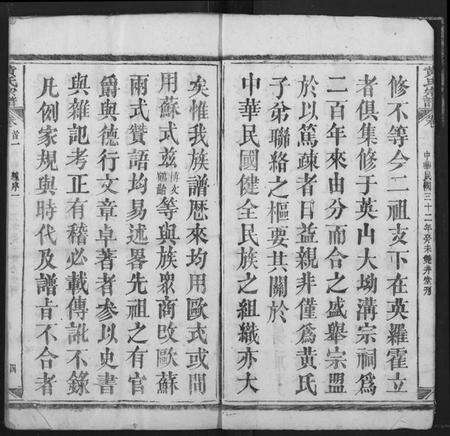 中華民國三十二年癸未雙井堂刊
修不等今二祖支下在英羅霍立
者俱集修于英山大坳溝宗祠爲
二百年來由分而合之盛舉宗盟
於以篤疎者日益親非僅爲黃氏
子弟聯絡之樞要其關於
中華民國健全民族之組織亦大
矣惟我族譜歷來均用歐式或間
用蘇式茲等與族衆商改歐蘇
兩式贊語均易述畧先祖之有官
爵與德行文章卓著者參以史書
與雜記考正有稽必載傳訛不錄
凡例家規與時代及譜旨不合者
首一
總序一
四